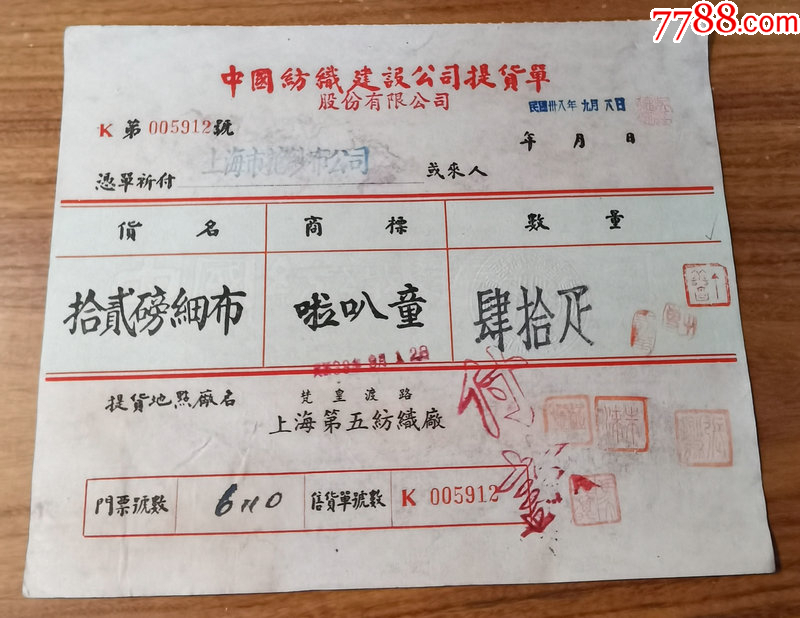 7788.com
中國紡織建設公司提貨單
股份有限公司
民國卅八年九月六日
K 第 005912 號
年 月 日
憑單祈付 上海市花紗布公司 或來人
貨名 商標 數量
拾貳磅細布 啦叭童 肆拾疋
提貨地點廠名 梵皇渡路
上海第五紡織廠
付
門票號數 售貨單號數 K 005912